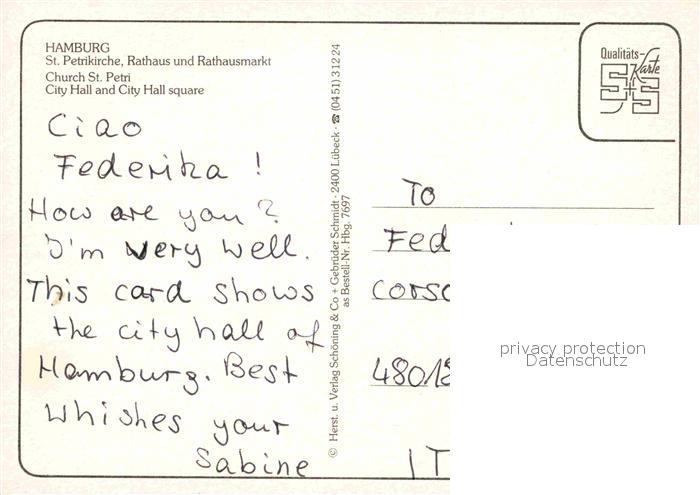 HAMBURG
St. Petrikirche, Rathaus und Rathausmarkt
Church St. Petri
City Hall and City Hall square
Ciao
Federika !
How are you ?
I'm very well.
This card shows
the city hall of
Hamburg. Best
Whishes your
Sabine
© Herst. u. Verlag Schöning & Co + Gebrüder Schmidt · 2400 Lübeck · ☎ (0451) 31224
as Bestell-Nr. Hbg. 7697
Qualitäts-
Karte
S+S
To
Fed
corso
48018
IT
privacy protection
Datenschutz